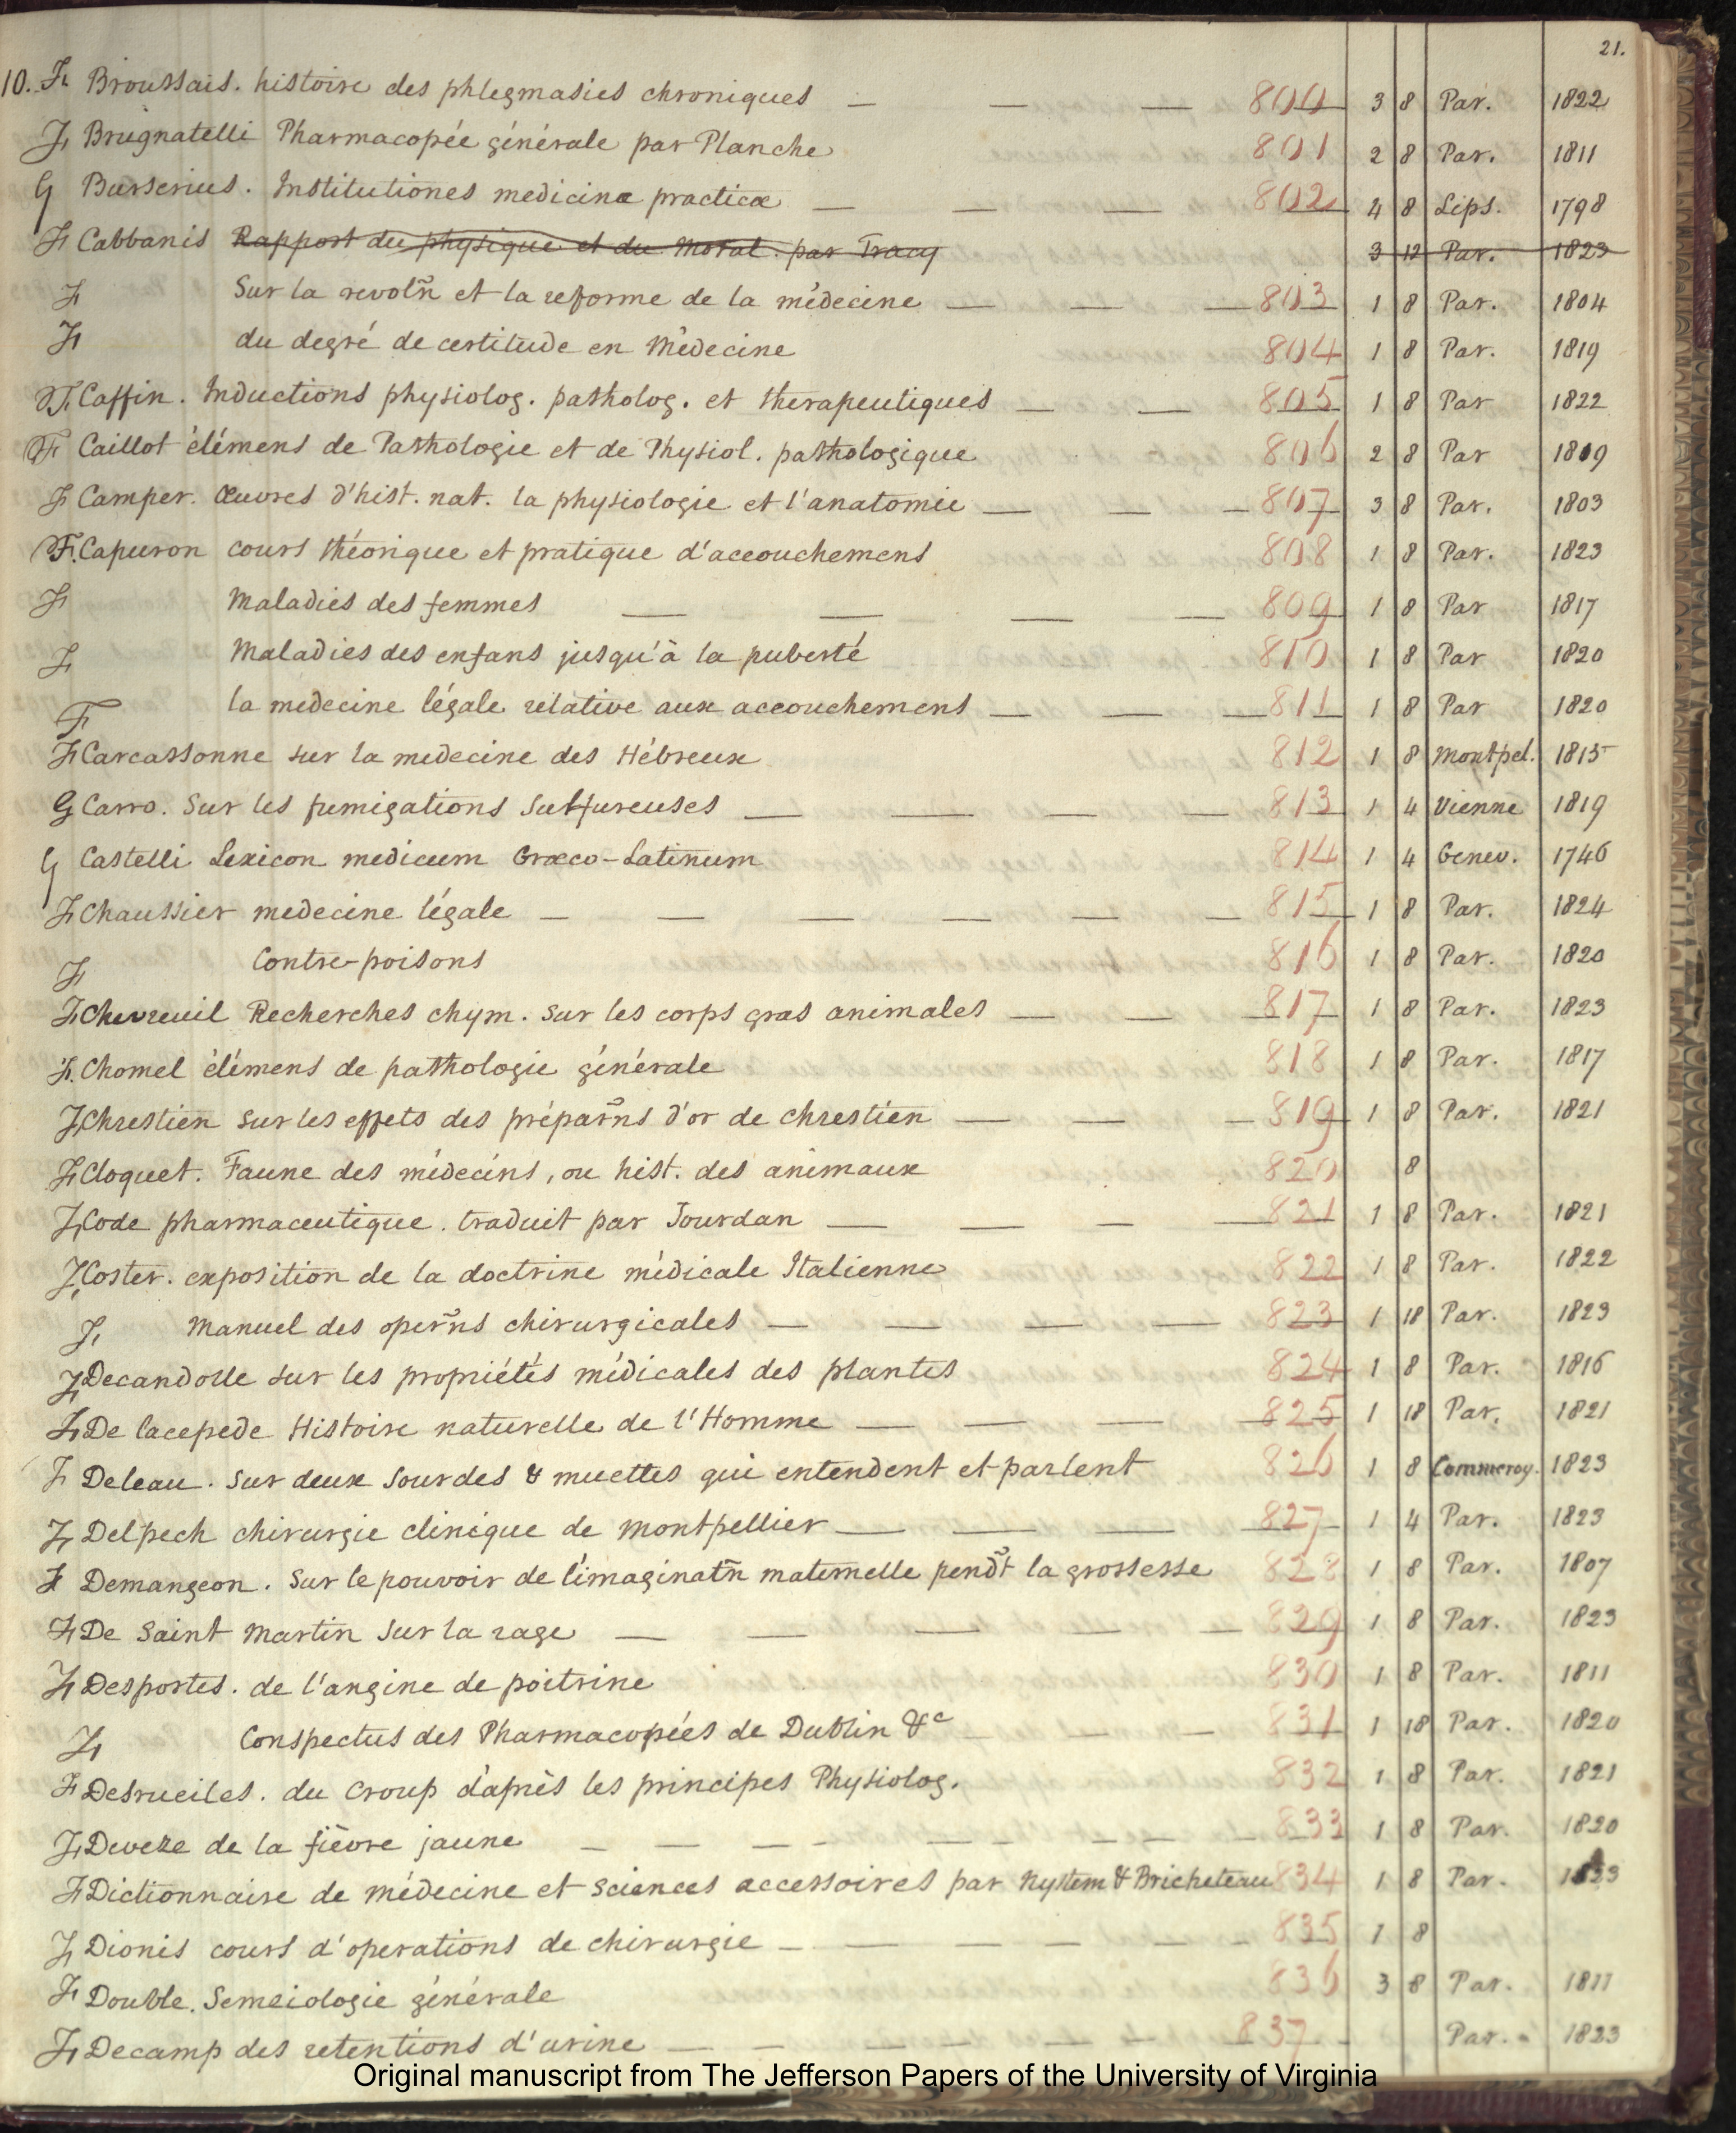 21.
10. F. Broussais. histoire des phlegmasies chroniques — — — 800 3 8 Par. 1822
F. Brugnatelli Pharmacopée générale par Planche 801 2 8 Par. 1811
G Burserius. Institutiones medicinæ practicæ — — — — 802 4 8 Lips. 1798
F Cabbanis Rapport du physique et du moral. par Tracy 3 12 Par. 1823
F Sur la revoln̄ et la reforme de la médecine — — — 803 1 8 Par. 1804
F du degré de certitude en Médecine 804 1 8 Par. 1819
F. Caffin. Inductions physiolog. patholog. et therapeutiques — — 805 1 8 Par 1822
F Caillot élémens de Pathologie et de Physiol. pathologique 806 2 8 Par 1819
F Camper. Œuvres d'hist. nat. la physiologie et l'anatomie — — — 807 3 8 Par. 1803
F. Capuron cours théorique et pratique d'accouchemens 808 1 8 Par. 1823
F Maladies des femmes — — — — 809 1 8 Par 1817
F Maladies des enfans jusqu'à la puberté 810 1 8 Par 1820
F la medecine légale relative aux accouchemens — — — 811 1 8 Par 1820
F Carcassonne sur la medecine des Hébreux 812 1 8 Montpel. 1815
G Carro. Sur les fumigations Sulfureuses — — — — 813 1 4 Vienne 1819
G Castelli Lexicon medicum Græco-Latinum 814 1 4 Genev. 1746
F Chaussier medecine légale — — — — — — 815 1 8 Par. 1824
F Contre-poisons 816 1 8 Par. 1820
F Chevreuil Recherches chym. sur les corps gras animales — — — 817 1 8 Par. 1823
F. Chomel élémens de pathologie générale 818 1 8 Par. 1817
F Chrestien sur les effets des préparn̄s d'or de chrestien — — — 819 1 8 Par. 1821
F Cloquet. Faune des médecins, ou hist. des animaux 820 8
F Code pharmaceutique. traduit par Jourdan — — — — 821 1 8 Par. 1821
F Coster. exposition de la doctrine médicale Italienne 822 1 8 Par. 1822
F. Manuel des opern̄s chirurgicales — — — — 823 1 18 Par. 1823
F Decandolle sur les propriétés médicales des plantes 824 1 8 Par. 1816
F De lacepede Histoire naturelle de l'Homme — — — — 825 1 18 Par. 1821
F Deleau. sur deux sourdes & muettes qui entendent et parlent 826 1 8 Commercy. 1823
F Delpech chirurgie clinique de Montpellier — — — — 827 1 4 Par. 1823
F Demangeon. Sur le pouvoir de l'imaginatn̄ maternelle pend̄t la grossesse 828 1 8 Par. 1807
F De Saint Martin sur la rage — — — — — 829 1 8 Par. 1823
F Desportes. de l'angine de poitrine 830 1 8 Par. 1811
F Conspectus des Pharmacopées de Dublin &c — — — 831 1 18 Par. 1820
F Desrueiles. du Croup d'après les principes Physiolog. 832 1 8 Par. 1821
F Deveze de la fièvre jaune — — — — — — 833 1 8 Par. 1820
F Dictionnaire de médecine et sciences accessoires par Nystem & Bricheteau 834 1 8 Par.
F Dionis cours d'operations de chirurgie — — — — — 835 1 8
F Double. Semeiologie générale 836 3 8 Par. 1811
F Decamp des retentions d'urine — — — — 837 — Par. 1823
Original manuscript from The Jefferson Papers of the University of Virginia